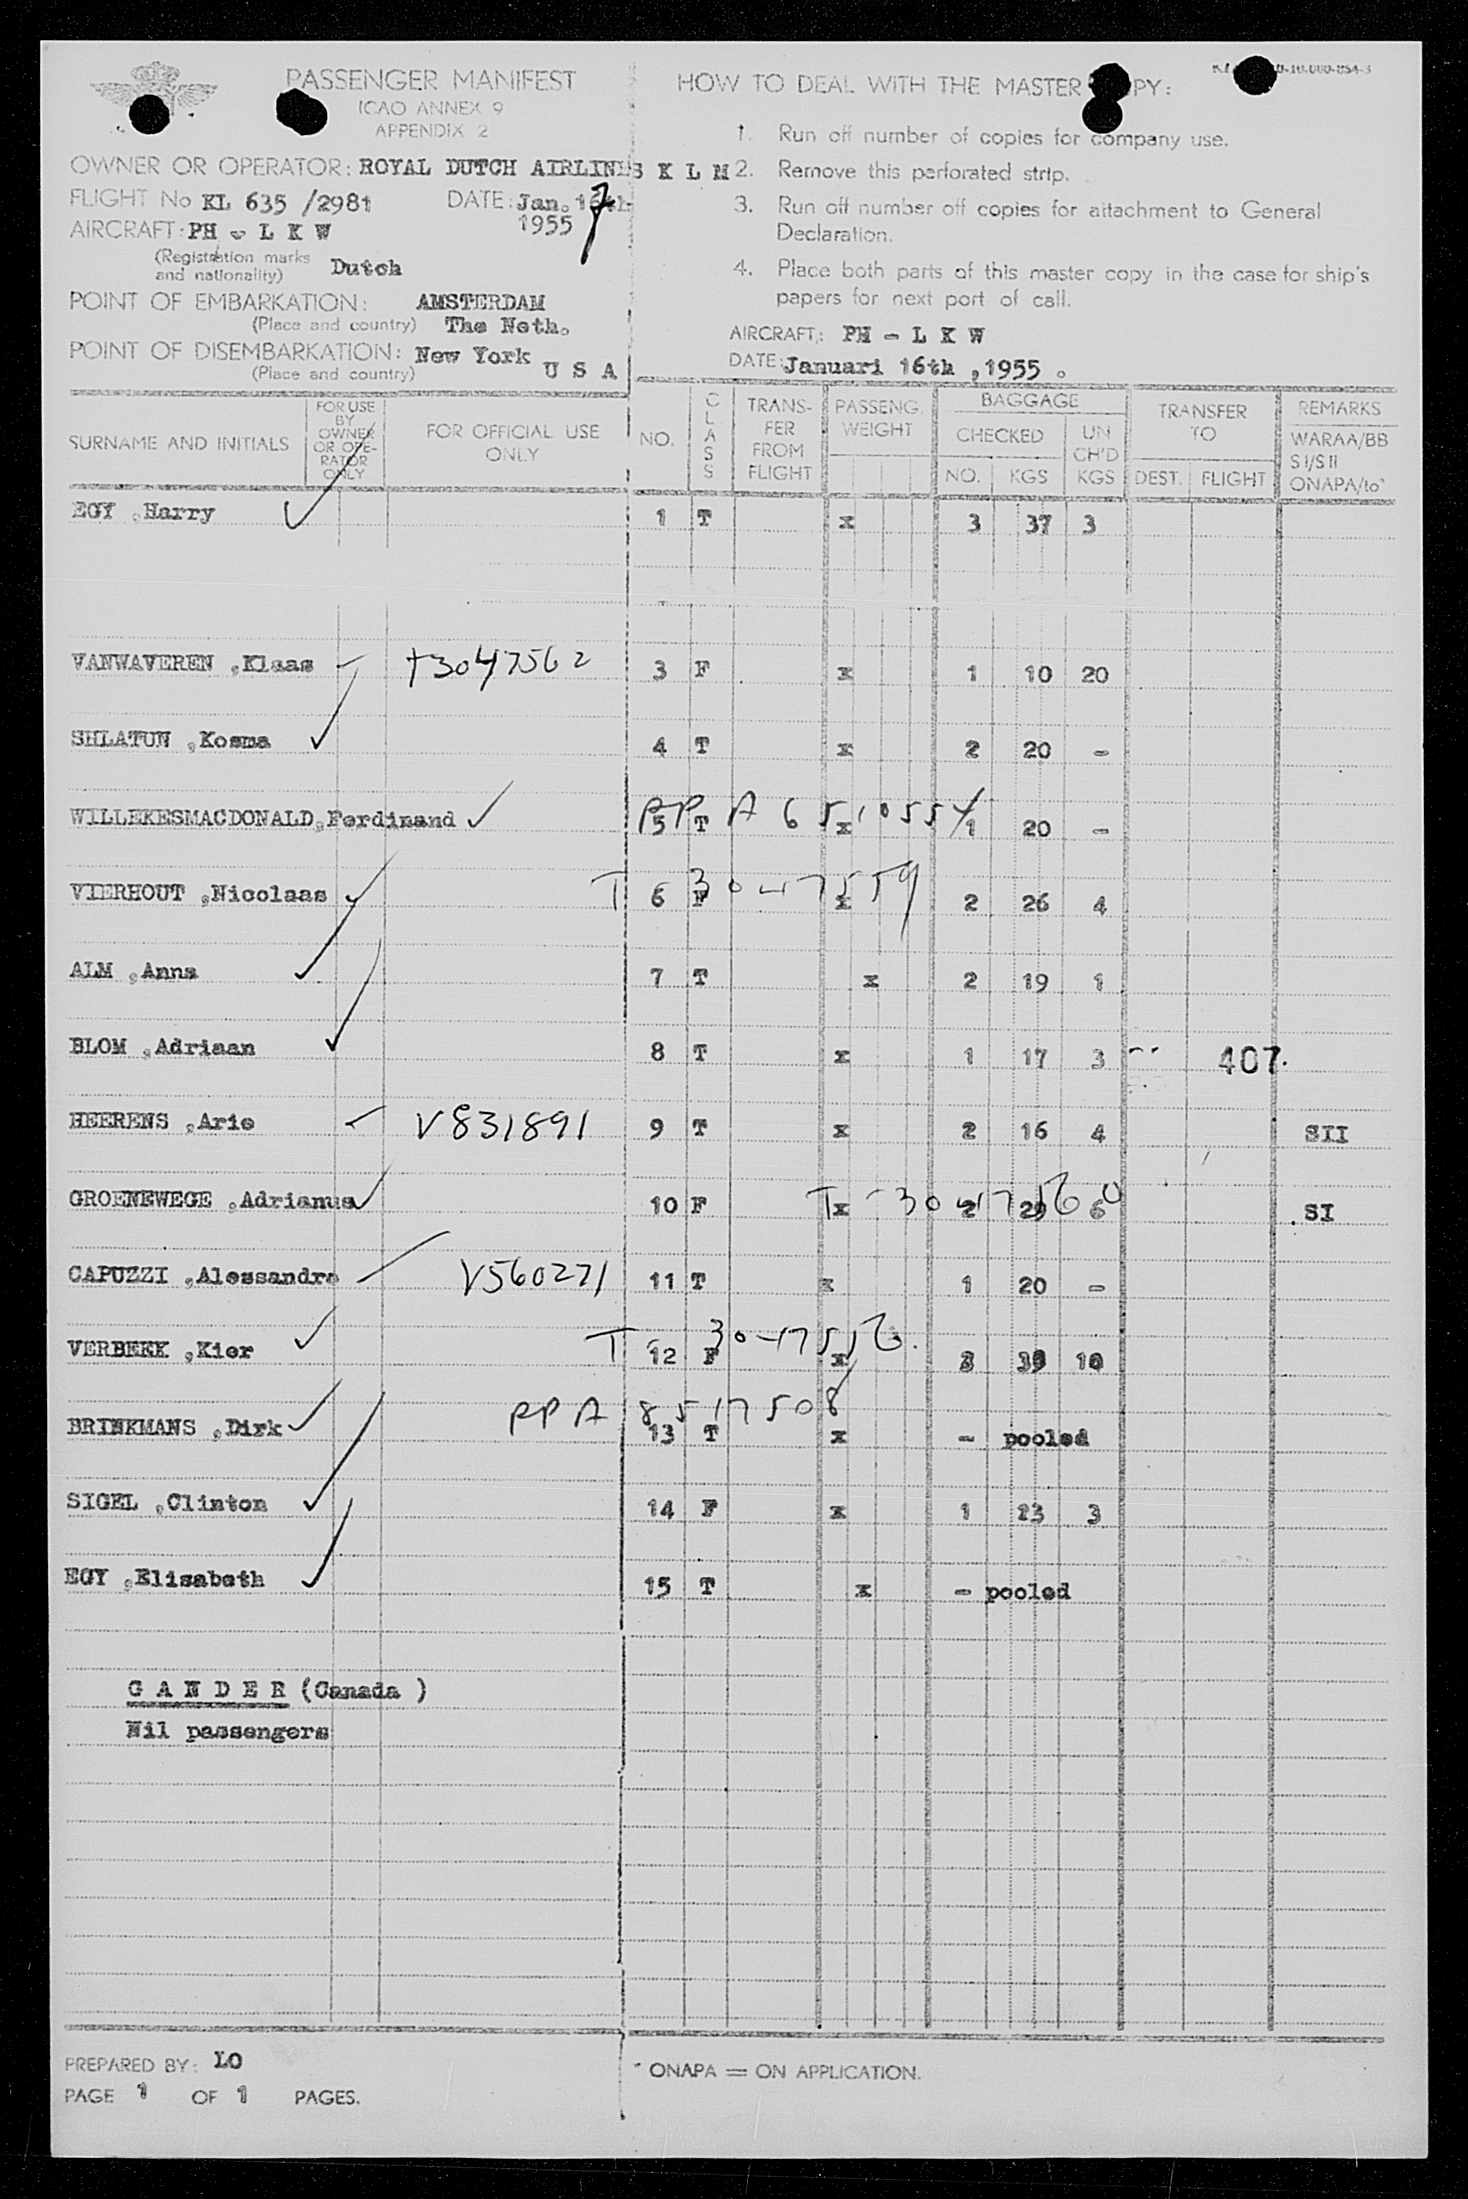 PASSENGER MANIFEST
ICAO ANNEX 9
APPENDIX 2
OWNER OR OPERATOR: ROYAL DUTCH AIRLINES K L M
FLIGHT No KL 635 /2981 DATE: Jan. 16th 7
1955
AIRCRAFT: PH - L K W
(Registration marks
and nationality) Dutch
POINT OF EMBARKATION: AMSTERDAM
(Place and country) The Neth.
POINT OF DISEMBARKATION: New York U S A
(Place and country)
HOW TO DEAL WITH THE MASTER PY:
1. Run off number of copies for company use.
2. Remove this perforated strip.
3. Run off number off copies for attachment to General
Declaration.
4. Place both parts of this master copy in the case for ship's
papers for next port of call.
AIRCRAFT: PH - L K W
DATE: Januari 16th ,1955 .
SURNAME AND INITIALS
FOR USE
BY
OWNER
OR OPE-
RATOR
ONLY
FOR OFFICIAL USE
ONLY
NO.
CLASS
TRANS-
FER
FROM
FLIGHT
PASSENG.
WEIGHT
BAGGAGE
CHECKED
NO. KGS
UN
CH'D
KGS
TRANSFER
TO
DEST. FLIGHT
REMARKS
WARAA/BB
SI/SII
ONAPA/to*
EGY ,Harry 1 T x 3 37 3
VANWAVEREN ,Klaas T3047562 3 F x 1 10 20
SHLATUN ,Kosma 4 T x 2 20 -
WILLEKESMACDONALD,Ferdinand PP A 6510554 5 T x 1 20 -
VIERHOUT ,Nicolaas T 3047559 6 F x 2 26 4
ALM ,Anna 7 T x 2 19 1
BLOM ,Adriaan 8 T x 1 17 3 -- 407.
HEERENS ,Arie V831891 9 T x 2 16 4 SII
GROENEWEGE ,Adrianus 10 F T-3047560 x 2 29 6 SI
CAPUZZI ,Alessandro V560271 11 T x 1 20 -
VERBEEK ,Kier T 3047556. 12 F x 3 10
BRINKMANS ,Dirk PP A 8517508 13 T x - pooled
SIGEL ,Clinton 14 F x 1 3
EGY ,Elisabeth 15 T x - pooled
G A N D E R (Canada )
Nil passengers
PREPARED BY: LO
PAGE 1 OF 1 PAGES.
* ONAPA = ON APPLICATION.